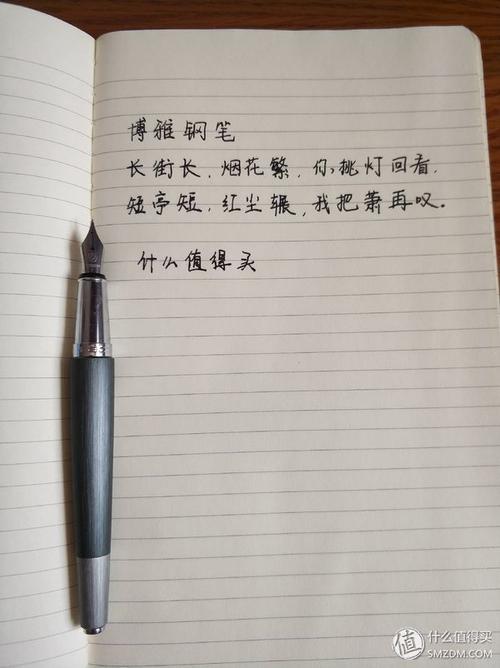 博雅钢笔
长街长，烟花繁，你挑灯回看，
短亭短，红尘辗，我把萧再叹．
什么值得买
值 什么值得买
SMZDM.COM